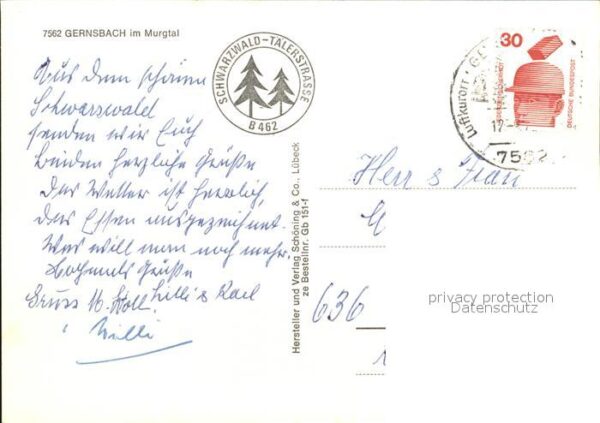 7562 GERNSBACH im Murgtal
Aus dem schönen
Schwarzwald
senden wir Euch
beiden herzliche Grüße
Das Wetter ist herrlich,
das Essen ausgezeichnet.
Was will man noch mehr.
Nochmals Grüße
Lilli & Karl
Gruss M. Stoll
Willi
SCHWARZWALD-TALERSTRASSE
B 462
Hersteller und Verlag Schöning & Co., Lübeck
ze Bestellnr. Gb 151-f
30
DEUTSCHE BUNDESPOST
Luftkurort
7562
Herr & Frau
636
privacy protection
Datenschutz